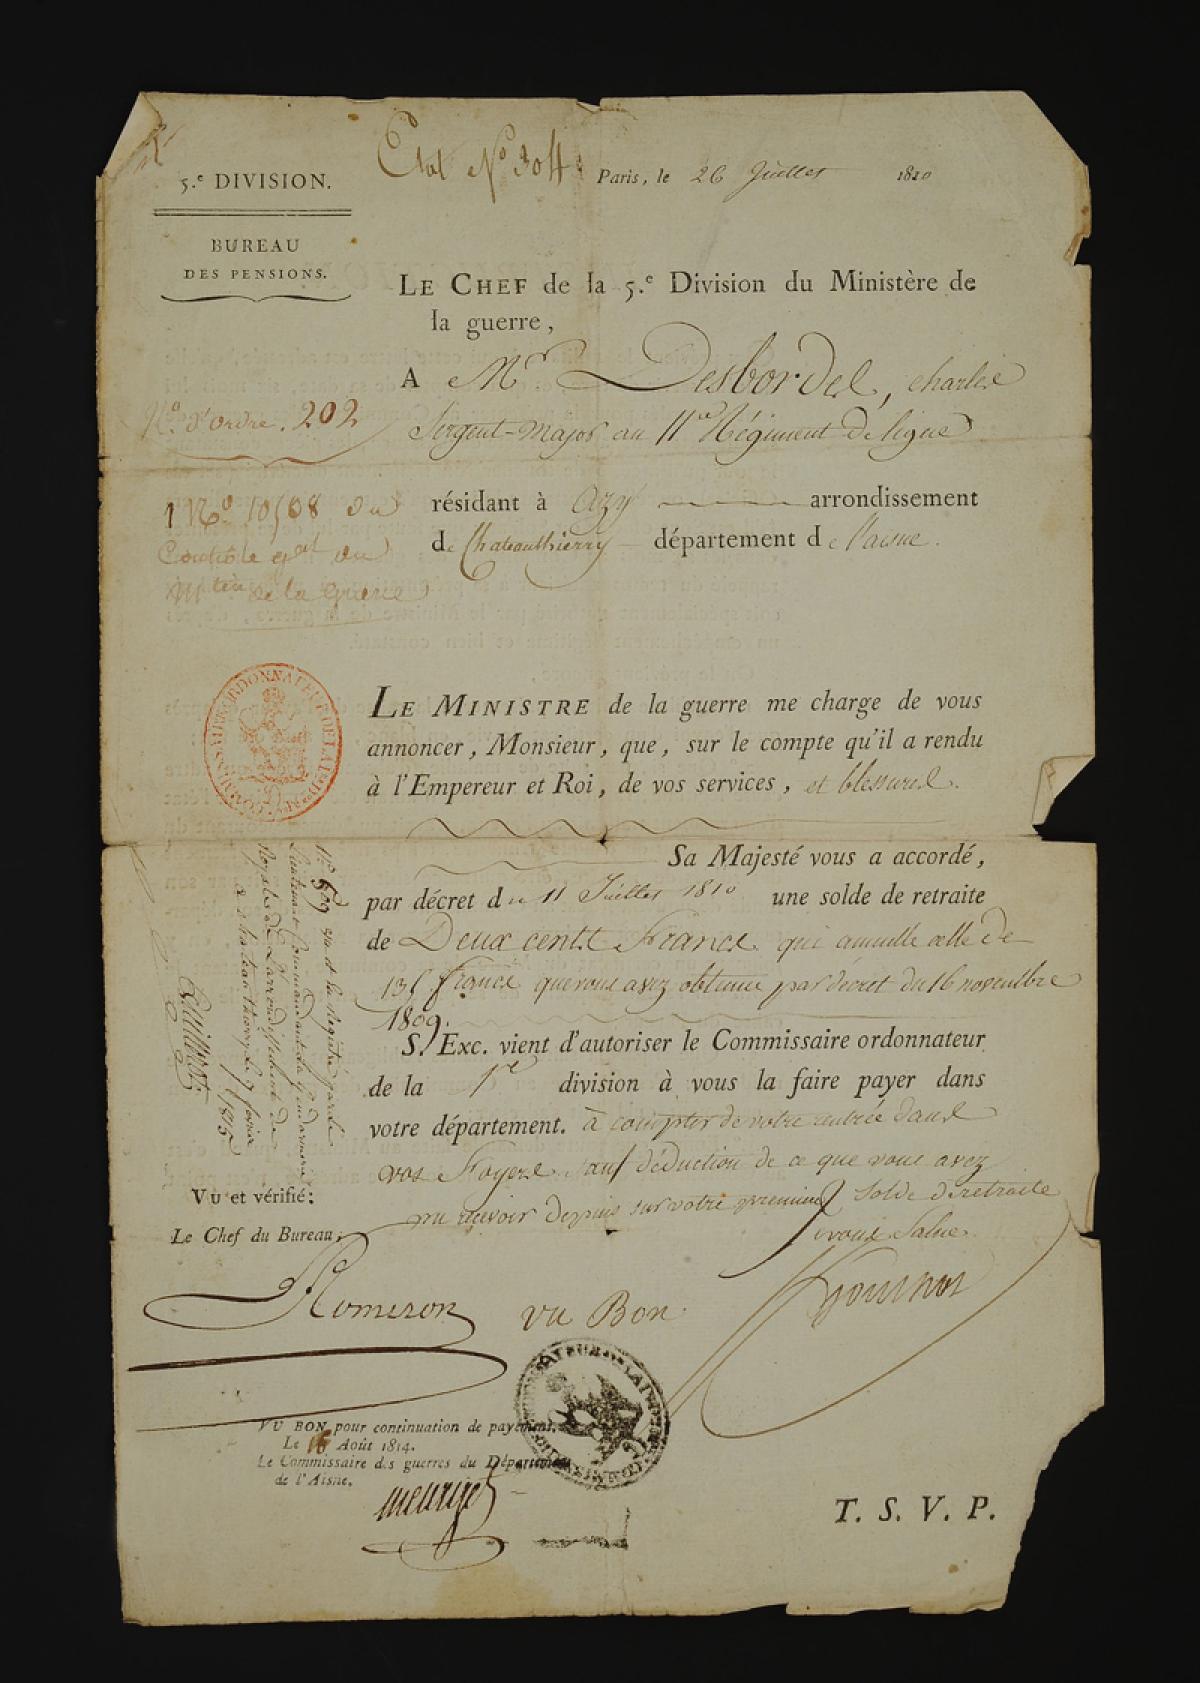 Etat N.o 304
5.e DIVISION.
Paris, le 26 Juillet 1810
BUREAU
DES PENSIONS.
LE CHEF de la 5.e Division du Ministère de
la guerre,
A Mr Desbordes, charles
Sergent-Major au 11e Régiment de ligne
N.o d'ordre. 202
résidant à Azy arrondissement
de Chateauthierry département de l'aisne.
N.o 10508 du
Controle gal du
Mtère de la guerre
LE MINISTRE de la guerre me charge de vous
annoncer, Monsieur, que, sur le compte qu'il a rendu
à l'Empereur et Roi, de vos services, et blessures.
Sa Majesté vous a accordé,
par décret du 11 Juillet 1810 une solde de retraite
de Deux cents Francs qui annulle celle de
135 francs que vous avez obtenue par décret du 16 novembre
1809.
S. Exc. vient d'autoriser le Commissaire ordonnateur
de la 1re division à vous la faire payer dans
votre département. à compter de votre rentrée dans
vos Foyers sauf déduction de ce que vous avez
pu recevoir depuis sur votre premiere solde de retraite
Je vous Salue
N.o 509 du Registre
Lieutenant Commandant la Gendarmerie
Royale de l'arrondissement de
chateauthierry le 7 1815
VU et vérifié:
Le Chef du Bureau,
Romeron
VU Bon
VU BON pour continuation de payement.
Le 16 Août 1814.
Le Commissaire des guerres du Département
de l'Aisne.
T. S. V. P.